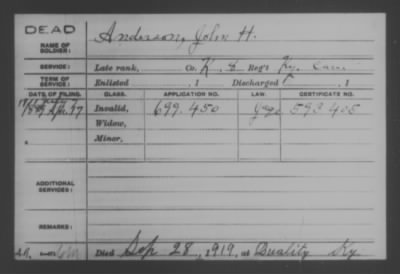 DEAD
NAME OF SOLDIER: Anderson, John H.
SERVICE: Late rank, Co. K. Reg't Ky. Cav.
TERM OF SERVICE: Enlisted , 1 Discharged , 1
DATE OF FILING. CLASS. APPLICATION NO. LAW. CERTIFICATE NO.
Invalid, 699.450 593.405
Widow,
Minor,
ADDITIONAL SERVICES:
REMARKS:
Died Sep 28, 1919, at Quality Ky